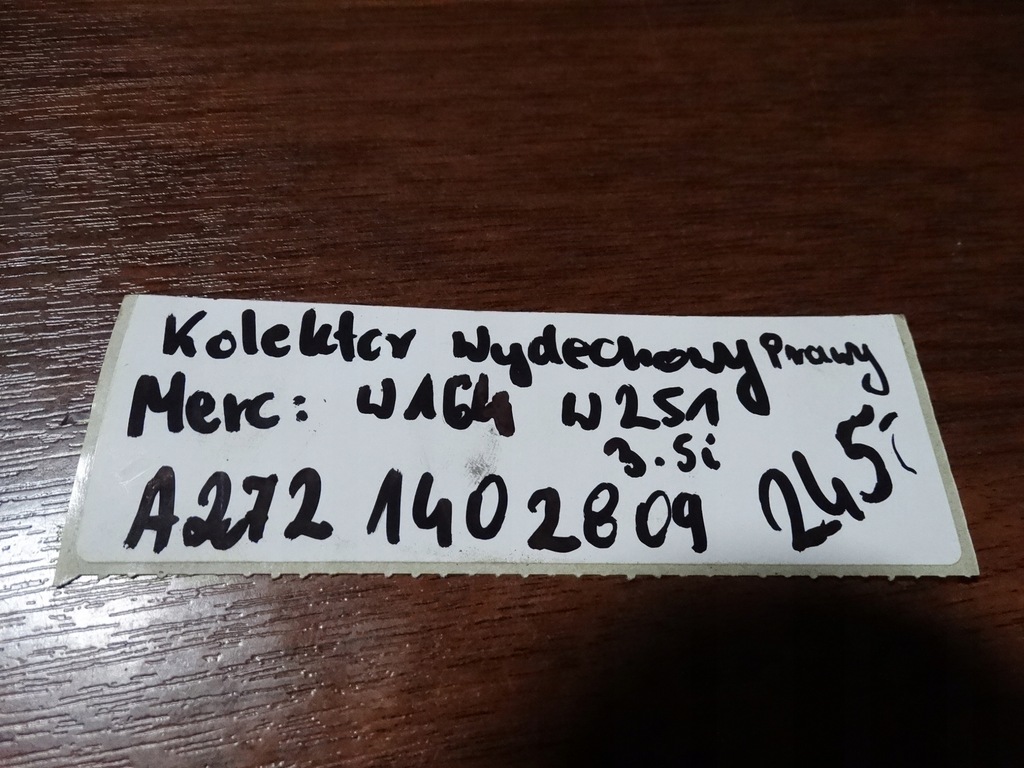 Kolektor Wydechowy Prawy
Merc: W164 W251
3.5i
A272 140 2809 245,-